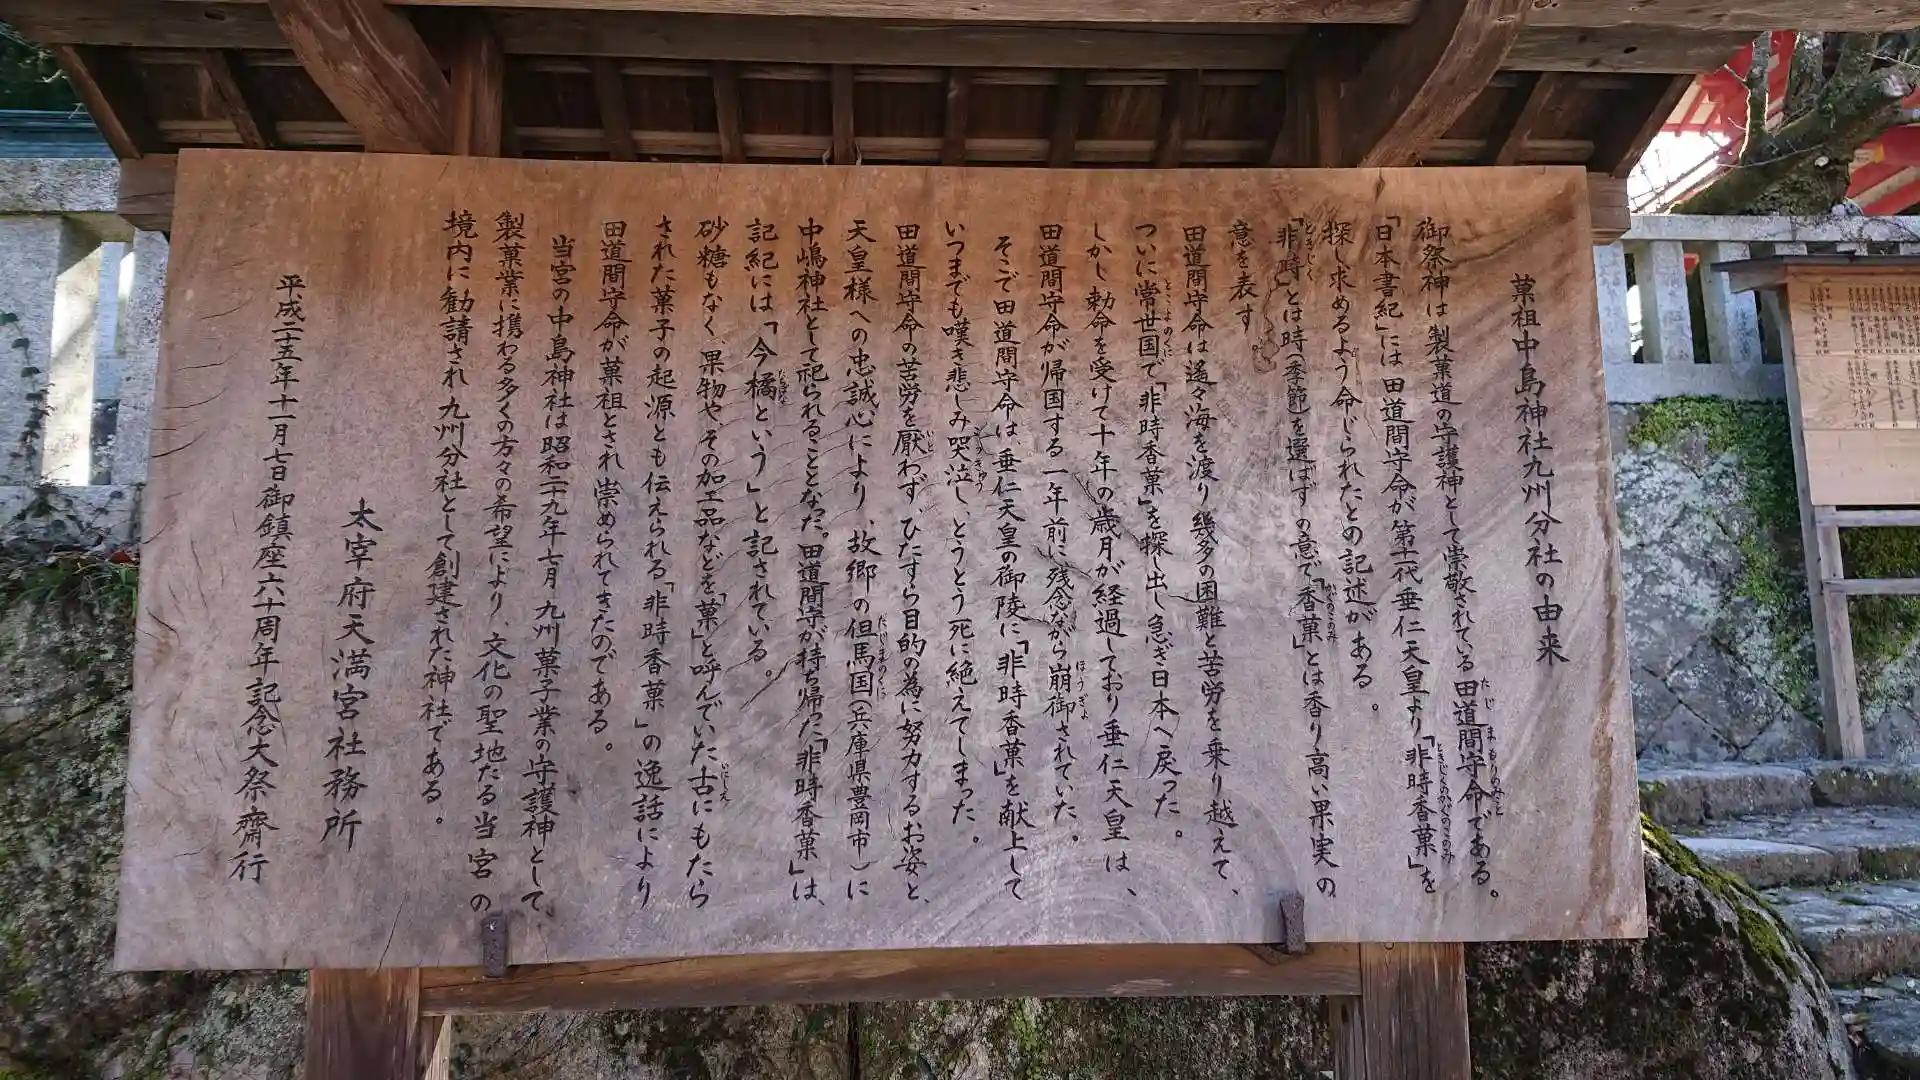 菓祖中島神社九州分社の由来
御祭神は製菓道の守護神として崇敬されている田道間守命である。
「日本書紀」には田道間守命が第十一代垂仁天皇より「非時香菓」を
探し求めるよう命じられたとの記述がある。
「非時」とは時(季節)を選ばずの意で「香菓」とは香り高い果実の
意を表す。
田道間守命は遙々海を渡り幾多の困難と苦労を乗り越えて、
ついに常世国で「非時香菓」を探し出し急ぎ日本へ戻った。
しかし勅命を受けて十年の歳月が経過しており垂仁天皇は、
田道間守命が帰国する一年前に残念ながら崩御されていた。
そこで田道間守命は垂仁天皇の御陵に「非時香菓」を献上して
いつまでも嘆き悲しみ哭泣し、とうとう死に絶えてしまった。
田道間守命の苦労を厭わず、ひたすら目的の為に努力するお姿と、
天皇様への忠誠心により、故郷の但馬国(兵庫県豊岡市)に
中嶋神社として祀られることとなった。田道間守が持ち帰った「非時香菓」は、
記紀には「今橘という」と記されている。
砂糖もなく、果物や、その加工品などを「菓」と呼んでいた古にもたら
された菓子の起源とも伝えられる「非時香菓」の逸話により
田道間守命が菓祖とされ崇められてきたのである。
当宮の中島神社は昭和二十九年七月九州菓子業の守護神として、
製菓業に携わる多くの方々の希望により、文化の聖地たる当宮の
境内に勧請され九州分社として創建された神社である。
太宰府天満宮社務所
平成二十五年十一月七日御鎮座六十周年記念大祭齋行